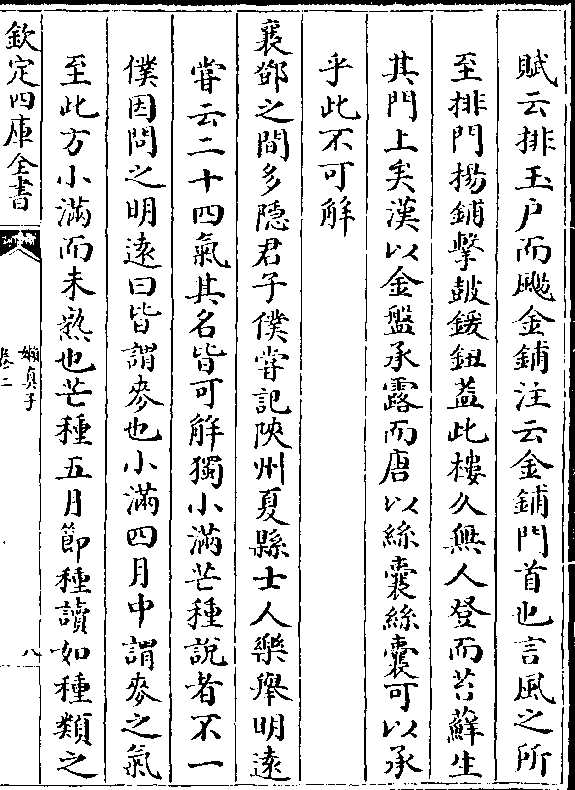 賦云排玉户而颺金鋪注云金鋪門首也言風之所
至排門揚鋪擊鼓鍰鈕葢此樓久無人登而苔蘚生
其門上矣漢以金盤承露而唐以絲囊絲囊可以承
乎此不可解
襄鄧之間多隱君子僕嘗記陜州夏縣士人樂舉明逺
嘗云二十四氣其名皆可解獨小滿芒種說者不一
僕因問之明逺曰皆謂麥也小滿四月中謂麥之氣
至此方小滿而未熟也芒種五月節種讀如種類之
欽定四庫全書
嬾真子
卷二
八